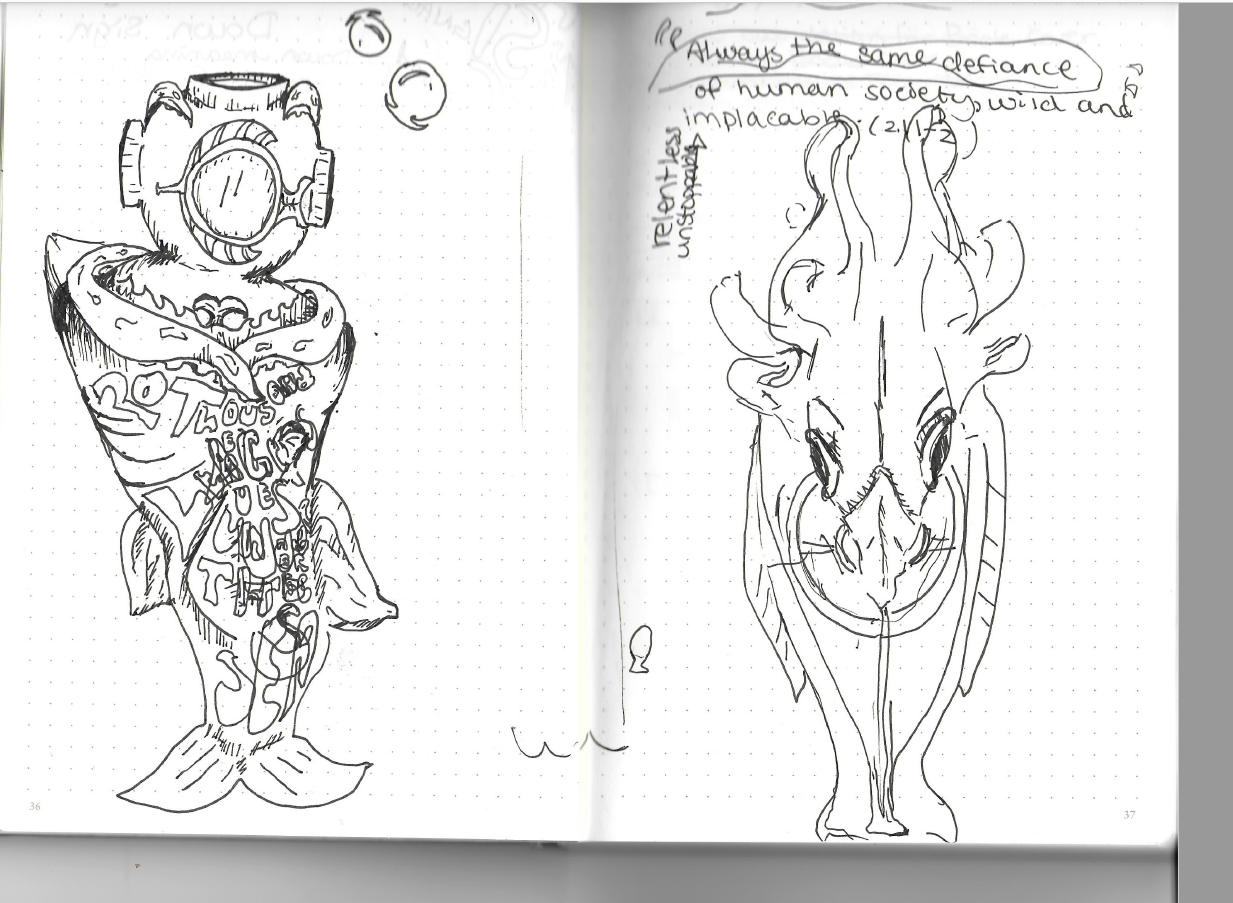 20 THOUSAND
LEAG
UES
UNDER
THE
SEA
36
"Always the same defiance
of human society, wild and
implacable." (2.1
relentless
unstoppable
37